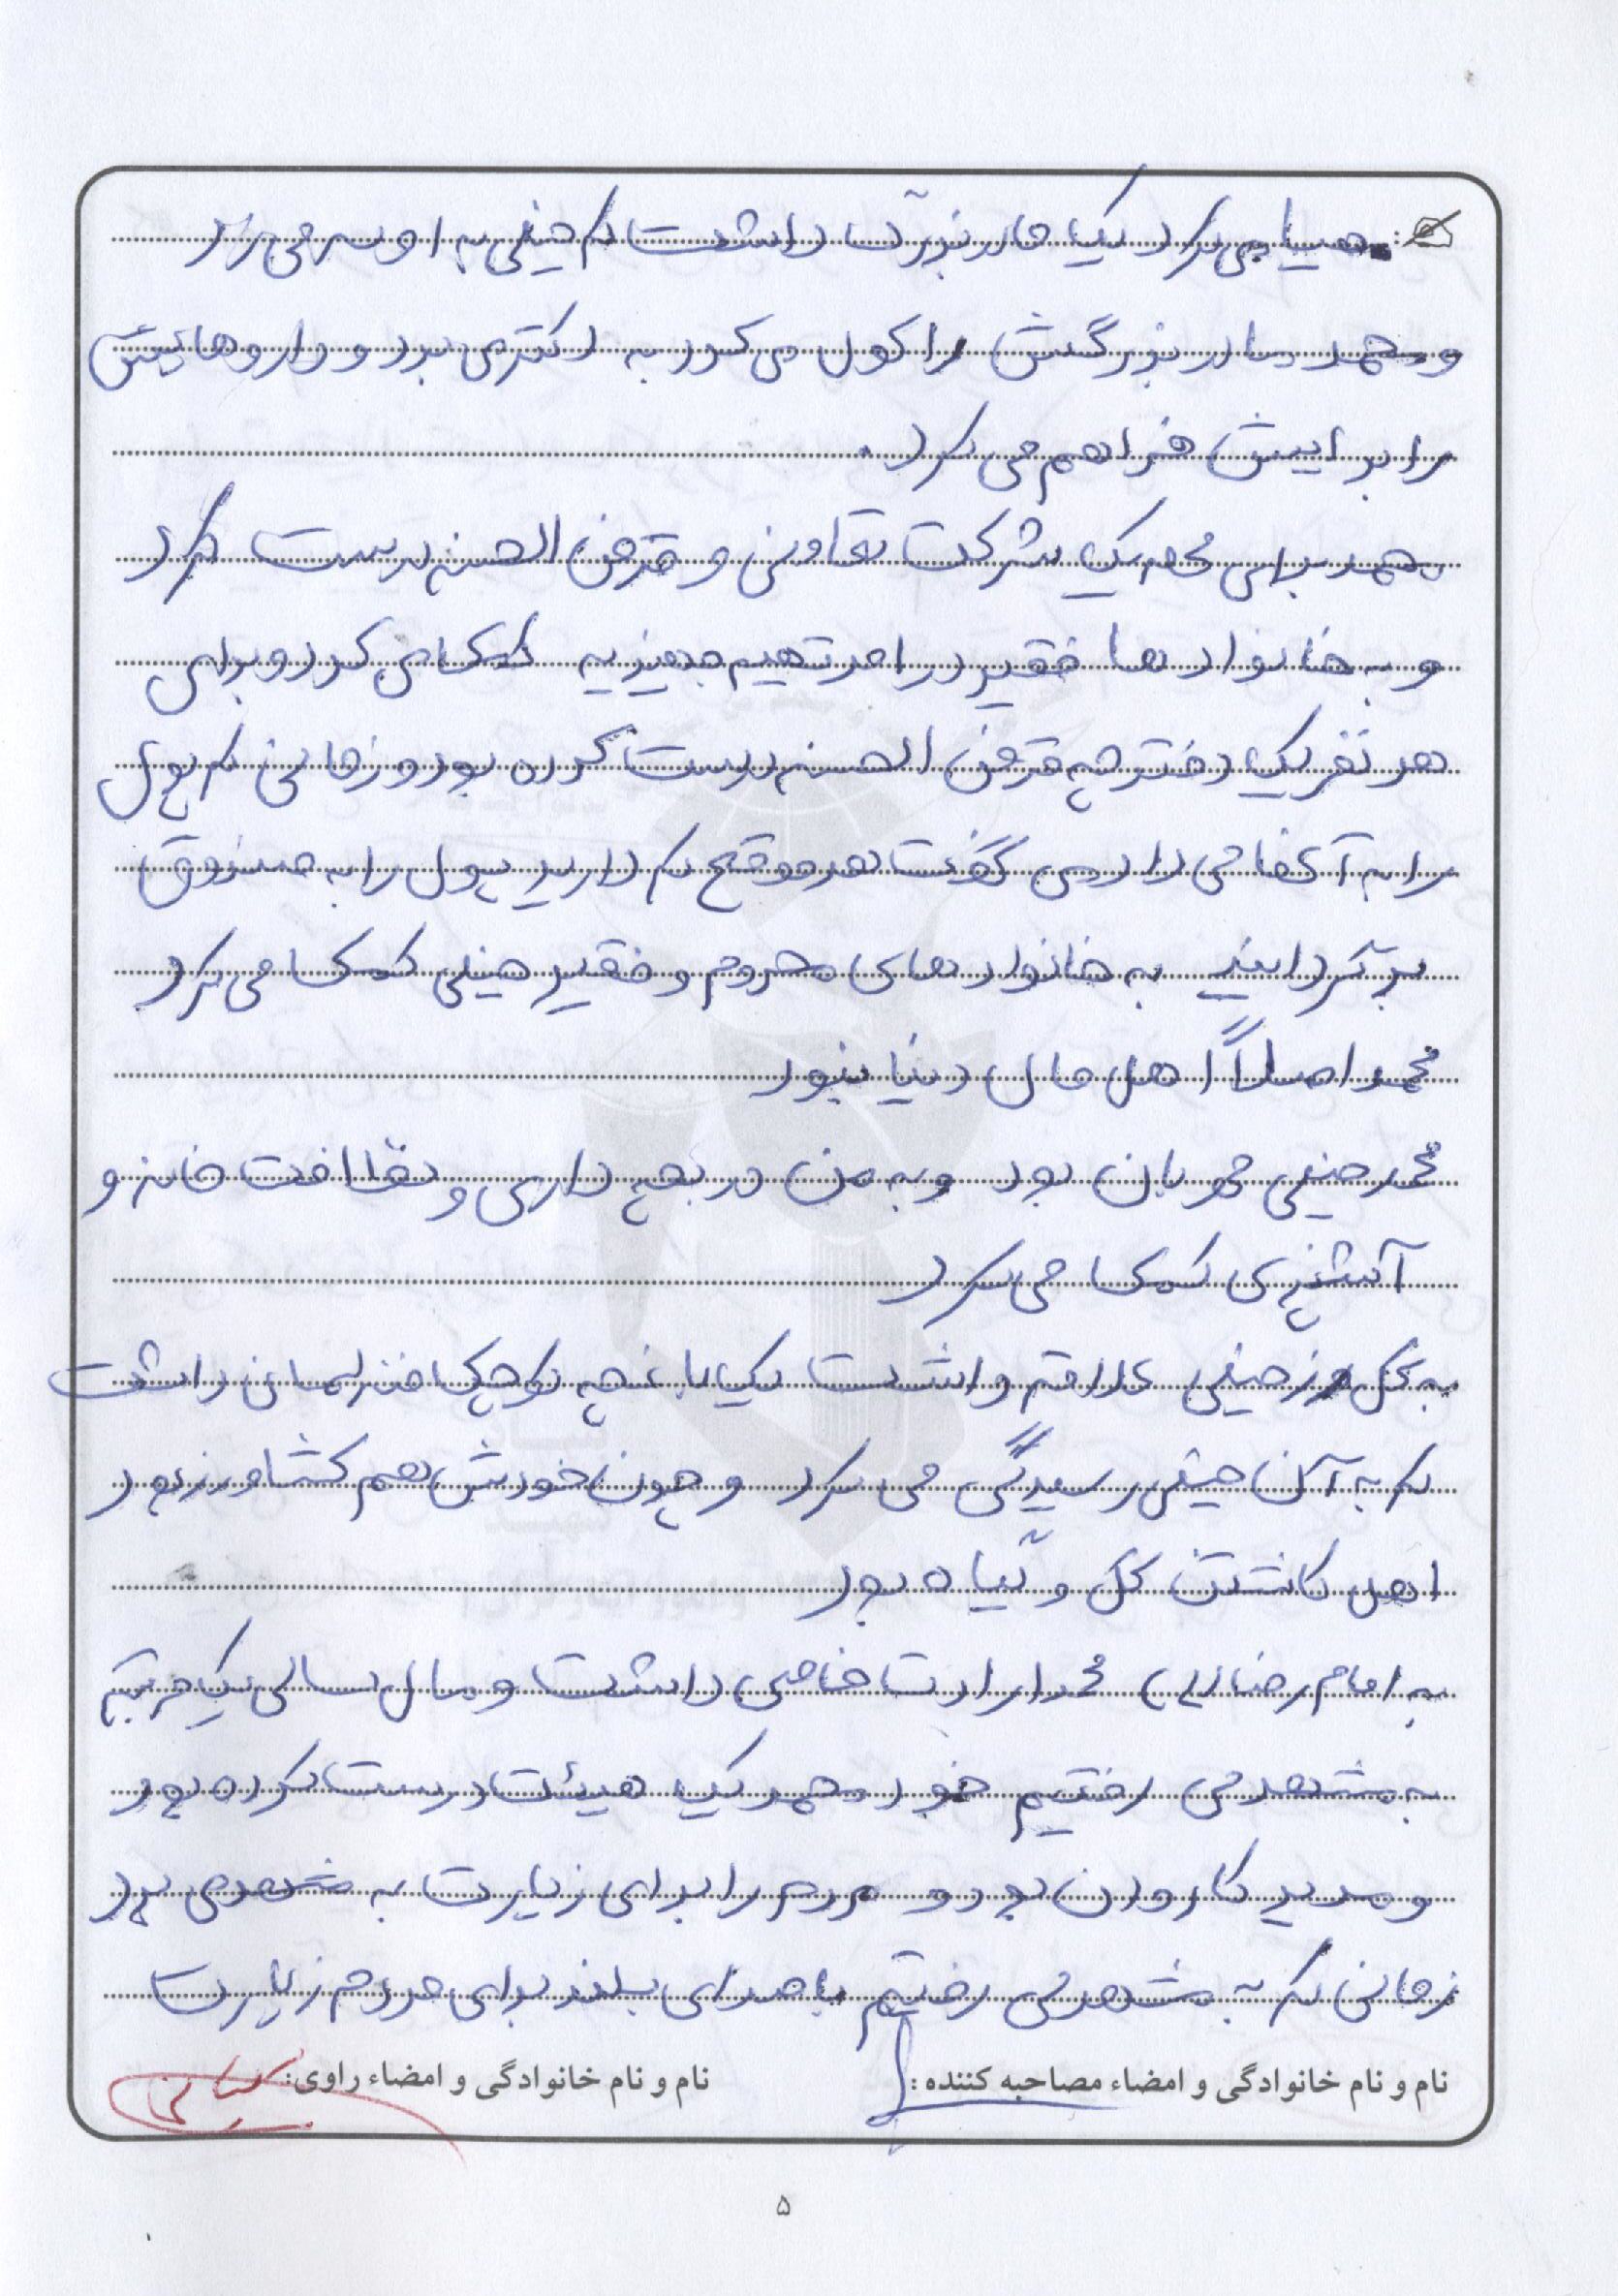 مهیا می کرد یک مادربزرگ داشت که خیلی به او سر می زد
و محمد مادر بزرگش را کول می کرد به دکتر می برد و داروهایش
را برایش فراهم می کرد.
محمد برای محله یک شرکت تعاونی و قرض الحسنه درست کرد
و به خانواده ها فقیر در امر تهیه جهیزیه کمک می کرد و برای
هر نفر یک دفترچه قرض الحسنه درست کرده بود و زمانی که پول
را به آنها می داد می گفت هر موقع که دارید پول را به صندوق
برگردانید به خانواده های محروم و فقیر خیلی کمک می کرد
محمد اصلاً اهل مال دنیا نبود
محمد خیلی مهربان بود و به من در بچه داری و نظافت خانه و
آشپزی کمک می کرد
به گل رز خیلی علاقه داشت یک باغچه کوچک منزلمان داشت
که به آن خیلی رسیدگی می کرد و چون خودش هم کشاورز بود
اهل کاشتن گل و گیاه بود
به امام رضا (ع) محمد ارادت خاصی داشت و سال سالی یک مرتبه
به مشهد می رفتیم خود محمد یک هیئت درست کرده بود
و مدیر کاروان بود و مردم را برای زیارت به مشهد می برد
زمانی که به مشهد می رفتیم با صدای بلند برای مردم زیارت
نام و نام خانوادگی و امضاء مصاحبه کننده :
نام و نام خانوادگی و امضاء راوی:
۵